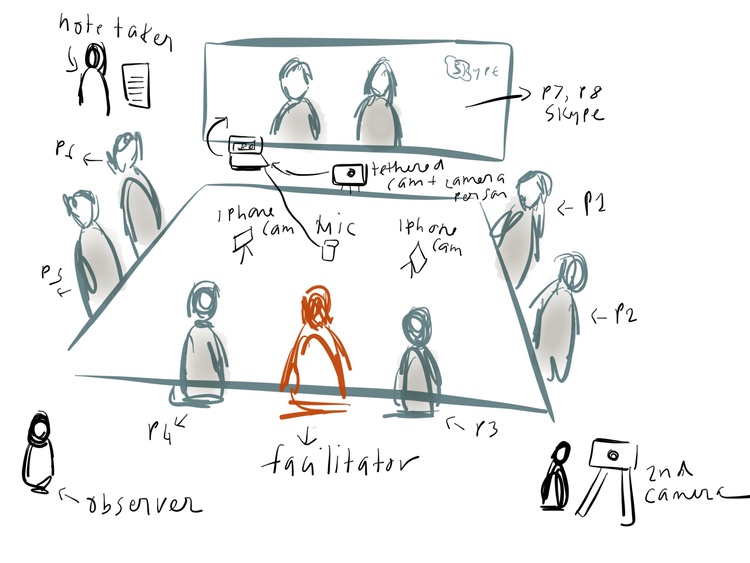 note taker
Skype
P7, P8
Skype
tethered
cam + camera
person
P1
iphone
cam
Mic
iphone
cam
P5
P2
P4
P3
facilitator
observer
2nd
camera